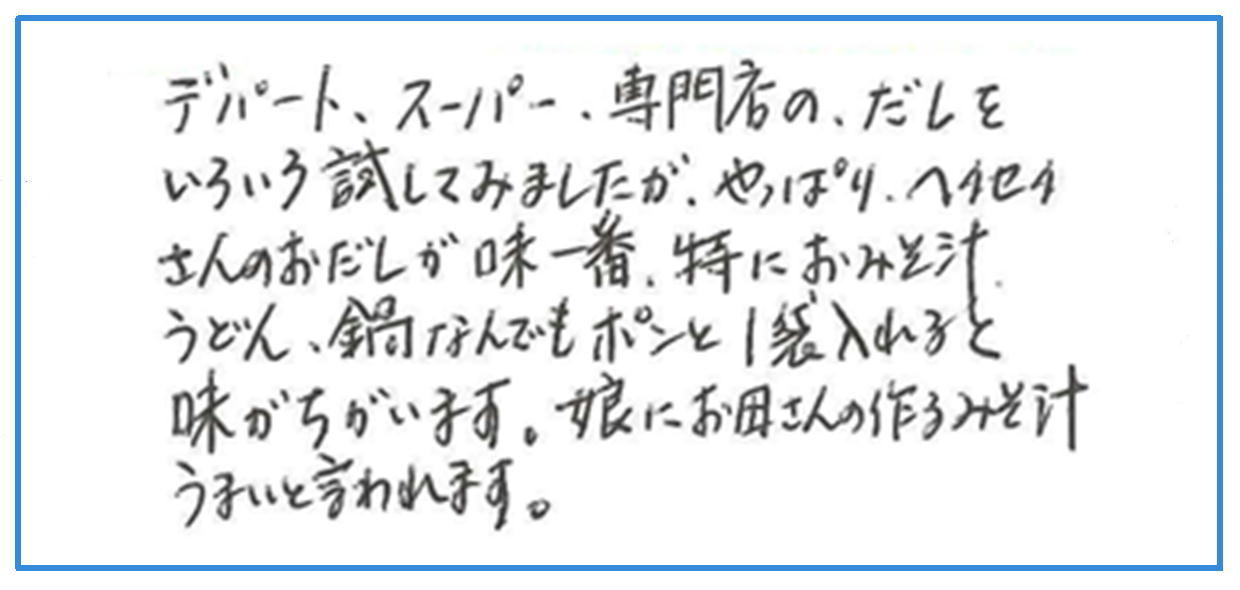 デパート、スーパー、専門店の、だしを
いろいろ試してみましたが、やっぱり、ヘイセイ
さんのおだしが味一番、特におみそ汁、
うどん、鍋なんでもポンと1袋入れると
味がちがいます。娘にお母さんの作るみそ汁
うまいと言われます。